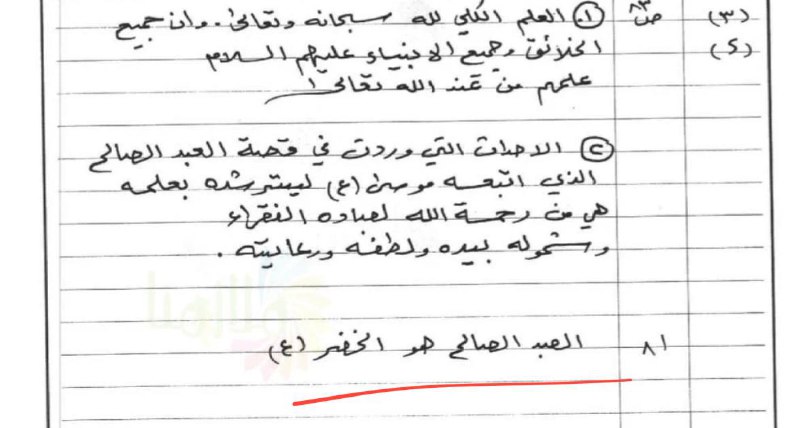 (٣) ص ٨٣ ١. العلم الكلي لله سبحانه وتعالى. وان جميع
(٤) الخلائق وجميع الانبياء عليهم السلام
علمهم من عند الله تعالى
٢ الاحداث التي وردت في قصة العبد الصالح
الذي اتبعه موسى (ع) ليسترشده بعلمه
هي من رحمة الله لعباده الفقراء
وشموله بيده ولطفه ورعايته.
٨١ العبد الصالح هو الخضر (ع)